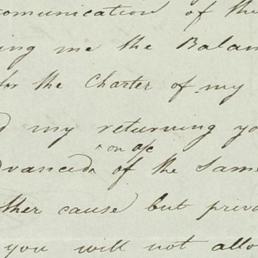 comunication of the
ing me the Balan
for the Charter of my
d my returning yo
on a/c
dvanced of the Same
ther cause but prev
you will not allo